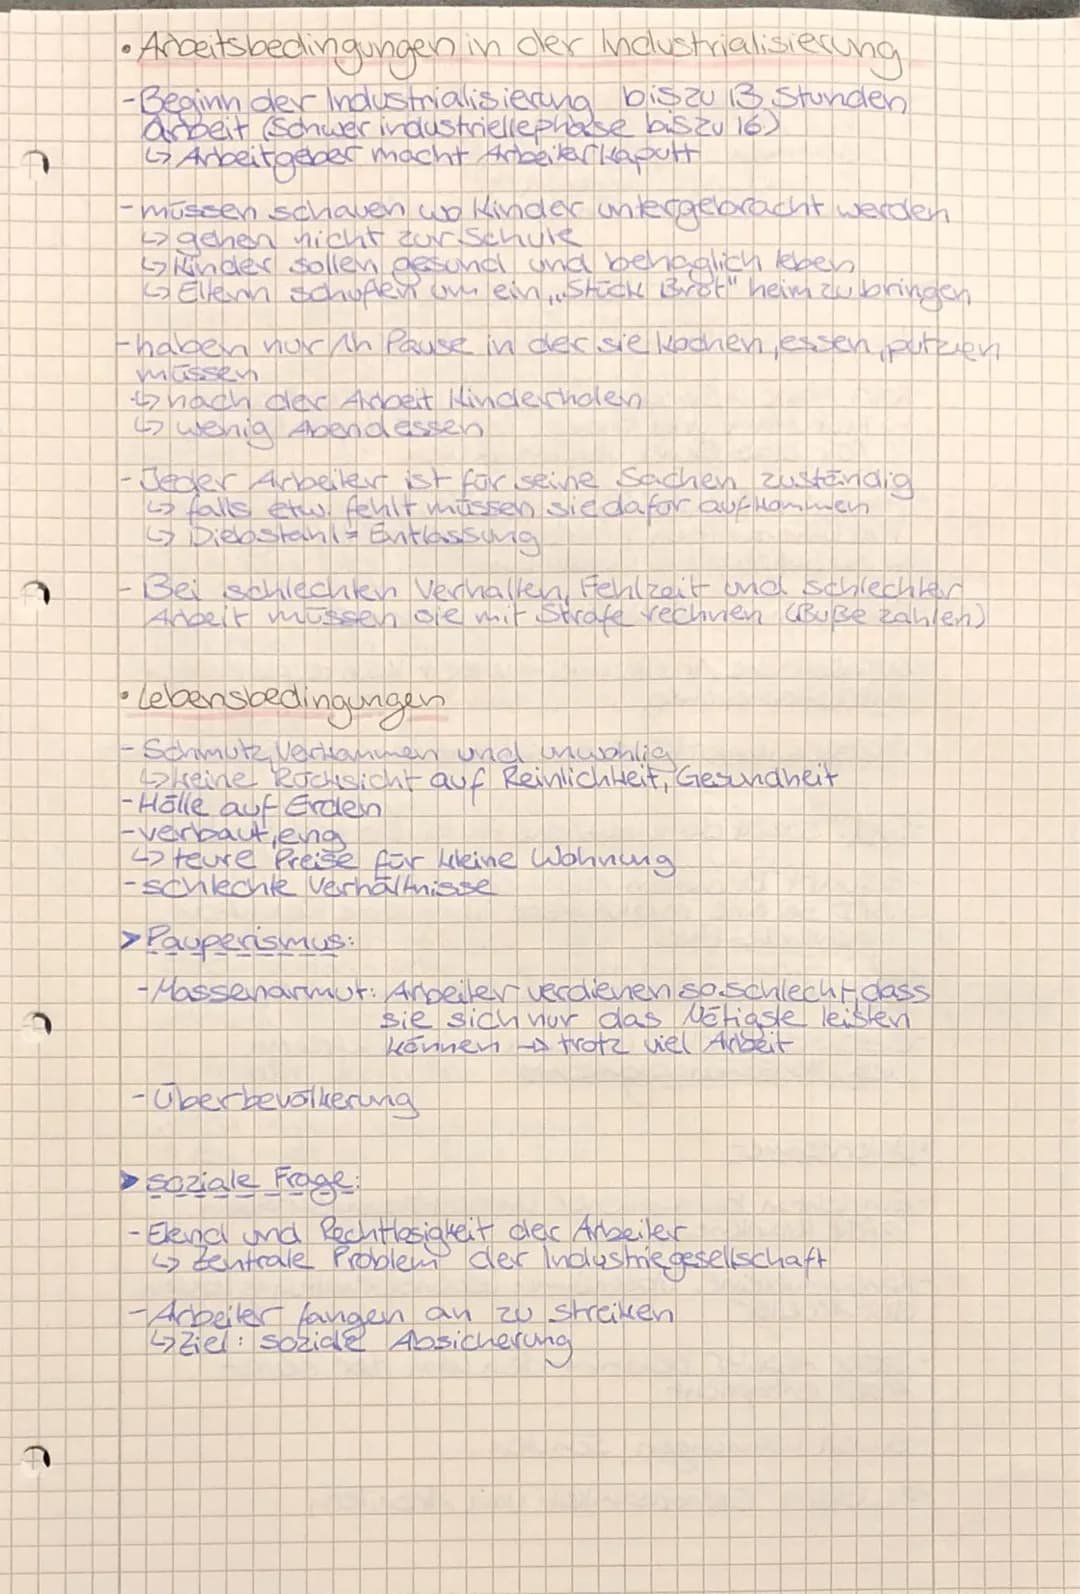 • Arbeitsbedingungen in der Industrialisierung
- Beginn der Industrialisierung bis zu 13 Stunden
Arbeit (Schwerindustriellephase bis zu 16)
↳ Arbeitgeber macht Arbeiter kaputt
- müssen schauen wo Kinder untergebracht werden
↳ gehen nicht zur Schule
↳ Kinder sollen gesund und behaglich leben
↳ Eltern schuften um ein „Stück Brot" heim zu bringen
- haben nur 1h Pause in der sie kochen, essen, putzen
müssen
↳ nach der Arbeit Kinder holen
↳ wenig Abendessen
- Jeder Arbeiter ist für seine Sachen zuständig
↳ falls etw. fehlt müssen sie dafür aufkommen
↳ Diebstahl = Entlassung
- Bei schlechten Verhalten, Fehlzeit und schlechter
Arbeit müssen sie mit Strafe rechnen (Buße zahlen)
• Lebensbedingungen
- Schmutz, Verkammen und unwohlig
↳ keine Rücksicht auf Reinlichkeit, Gesundheit
- Hölle auf Erden
- verbaut, eng
↳ teure Preise für kleine Wohnung
- schlechte Verhältnisse
> Pauperismus:
- Massenarmut: Arbeiter verdienen so schlecht, dass
sie sich nur das Nötigste leisten
können → trotz viel Arbeit
- Überbevölkerung
> soziale Frage:
- Elend und Rechtlosigkeit der Arbeiter
↳ Zentrale Problem der Industriegesellschaft
- Arbeiter fangen an zu streiken
↳ Ziel: soziale Absicherung